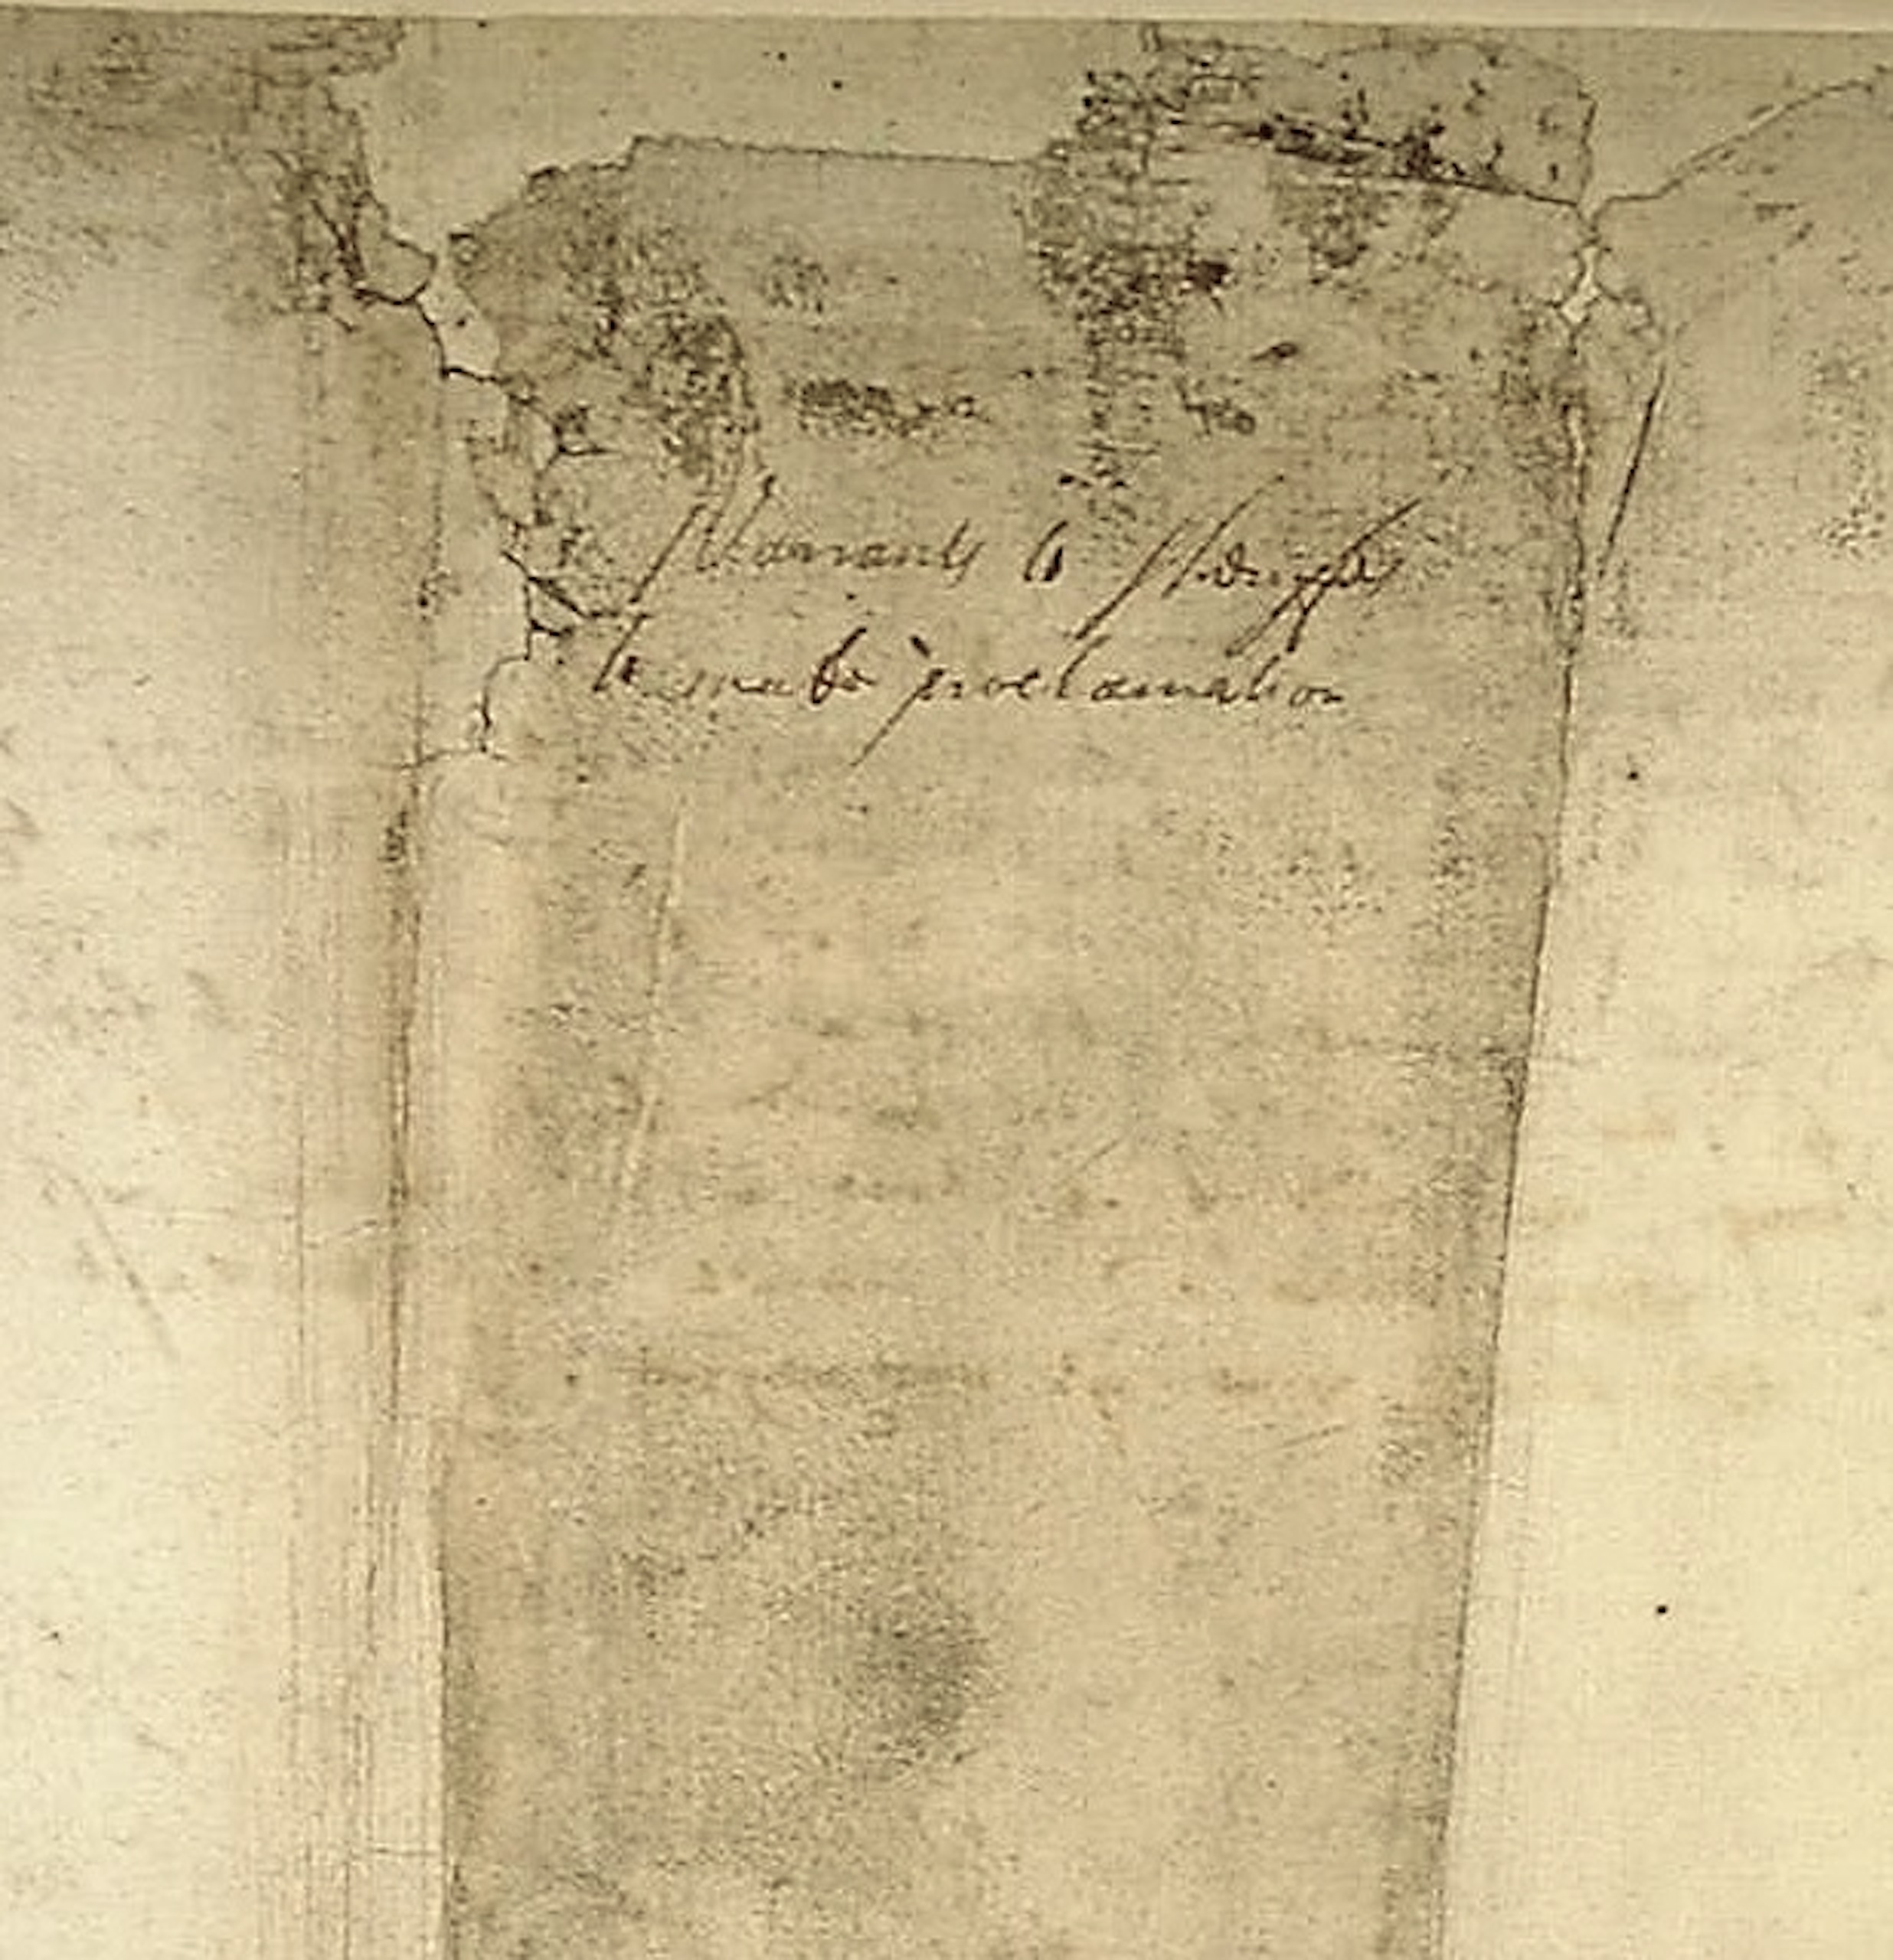 Warrants to Sheriffs
to make proclamation